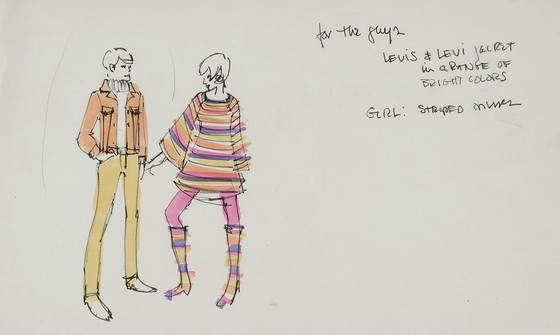 for the guys
LEVIS & LEVI JACKET
in a RANGE OF
BRIGHT COLORS
GIRL: STRIPED